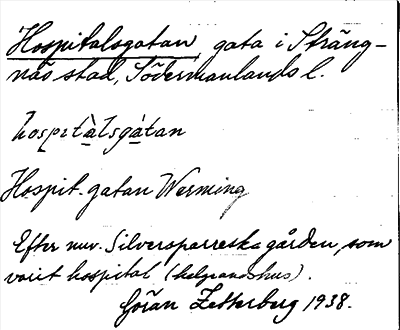 Hospitalsgatan, gata i Sträng-
näs stad, Södermanlands l.
hospitàlsgàtan
Hospit. gatan Werming
Efter nuv. Silversparreska gården, som
varit hospital (helgeandshus).
Göran Zetterberg 1938.